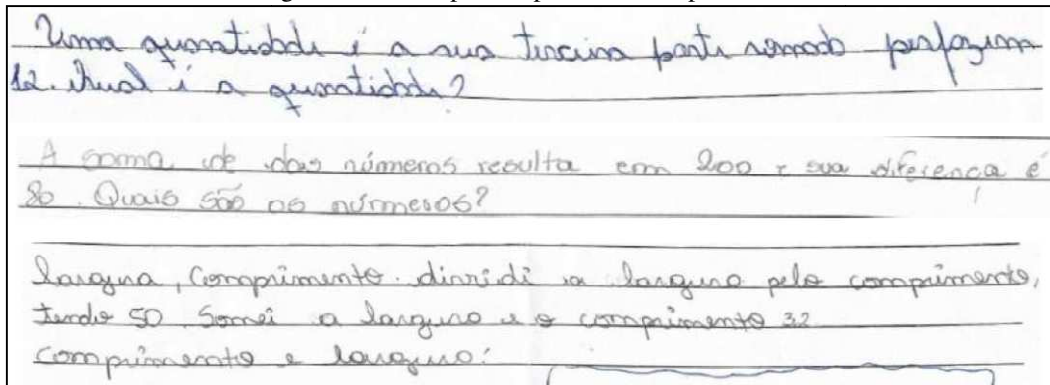 Uma quantidade é a sua terceira parte somado perfazem
12. Qual é a quantidade?
A soma de dos números resulta em 200 e sua diferença é
80. Quais são os números?
largura, Comprimento. dividi a largura pelo comprimento,
tendo 50. Somei a largura e o comprimento 32
comprimento e largura: